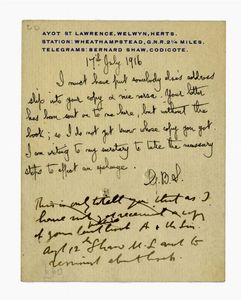 AYOT ST LAWRENCE, WELWYN, HERTS.
STATION: WHEATHAMPSTEAD, G.N.R. 2¼ MILES.
TELEGRAMS: BERNARD SHAW, CODICOTE.
17th July 1916
I must have put somebody else's address
slip into your copy in nice verse. Your letter
has been sent on to me here, but without the
book; so I do not yet know whose copy you got.
I am writing to my secretary to take the necessary
steps to effect an exchange.
G.B.S.
This is only to tell you that as I
have not received a copy
of your last book